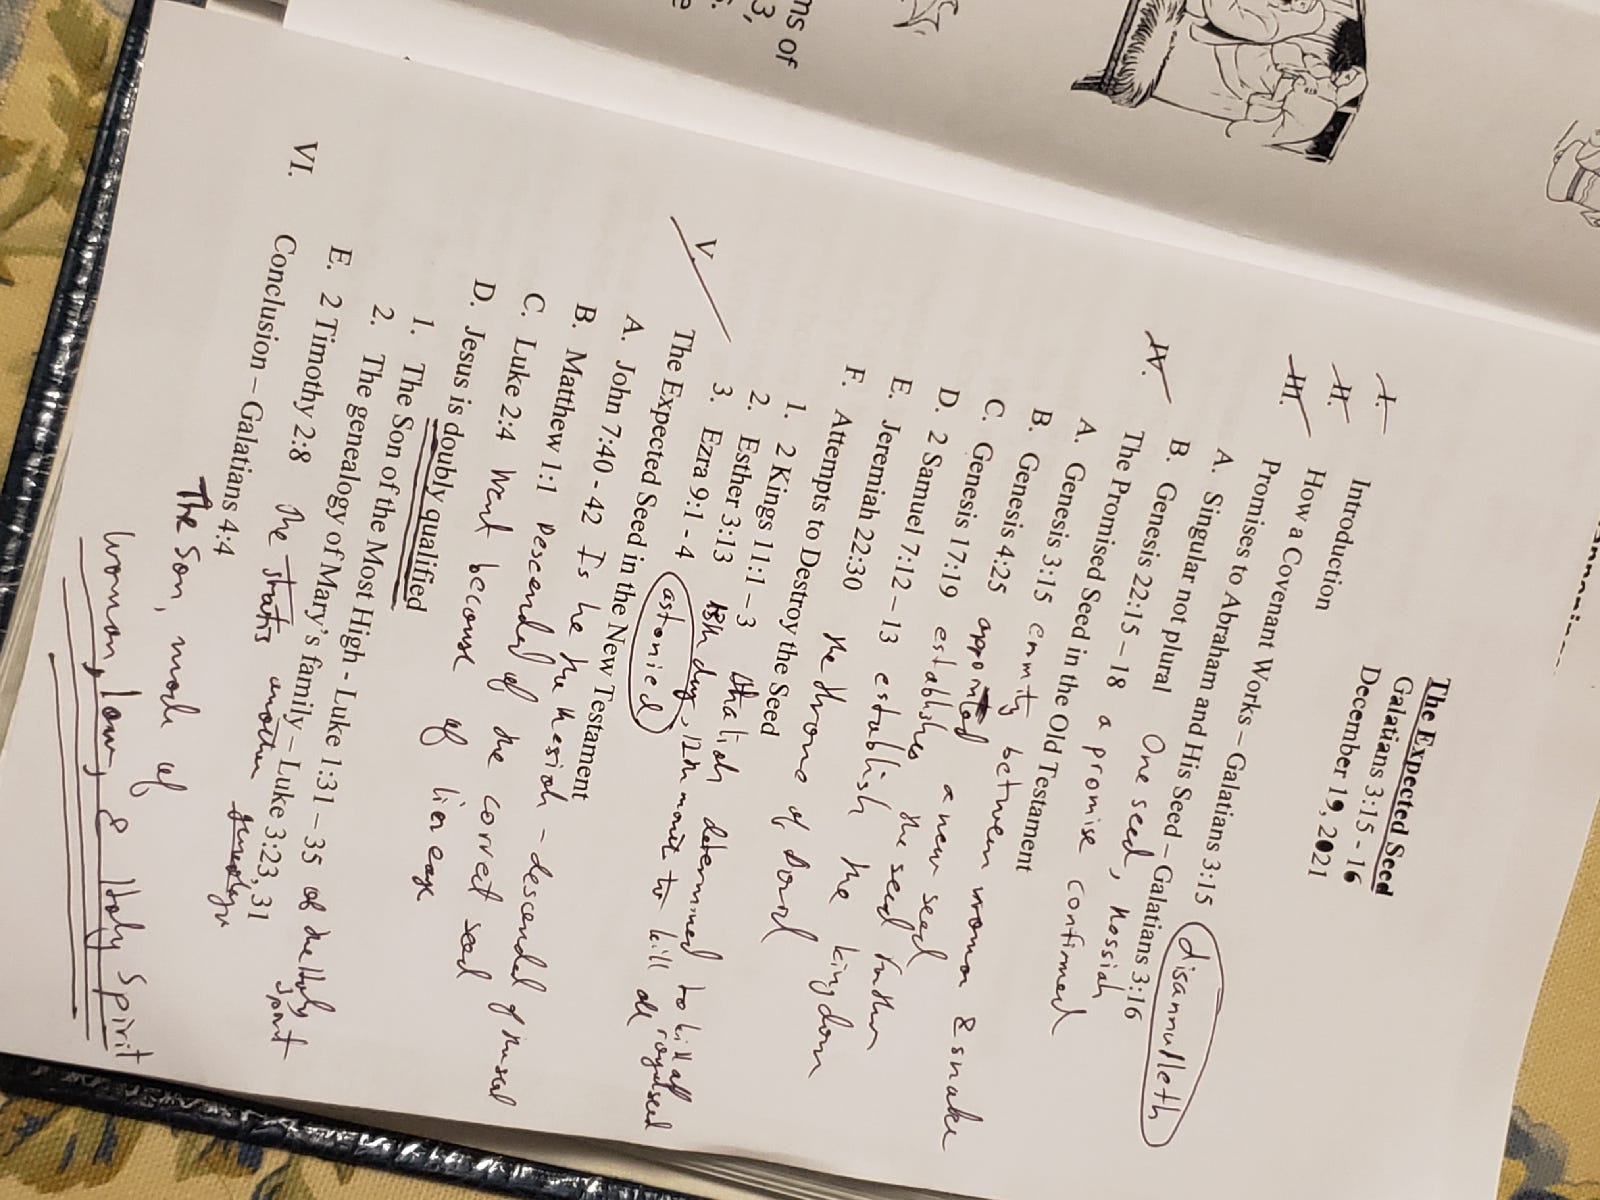 The Expected Seed
Galatians 3:15 - 16
December 19, 2021
I. Introduction
II. How a Covenant Works – Galatians 3:15 disannulleth
III. Promises to Abraham and His Seed – Galatians 3:16
A. Singular not plural One seed, Messiah
B. Genesis 22:15 – 18 a promise confirmed
IV. The Promised Seed in the Old Testament
A. Genesis 3:15 enmity between woman & snake
B. Genesis 4:25 appointed a new seed
C. Genesis 17:19 establishes the seed further
D. 2 Samuel 7:12 – 13 establish the kingdom
E. Jeremiah 22:30 the throne of David
F. Attempts to Destroy the Seed
1. 2 Kings 11:1 – 3 Athaliah determined to kill all royal seed
2. Esther 3:13 13th day, 12th month to kill all
3. Ezra 9:1 - 4 astonied
V. The Expected Seed in the New Testament
A. John 7:40 - 42 Is he the Messiah – descended of
B. Matthew 1:1 Descended of the correct seed
C. Luke 2:4 Went because of lineage
D. Jesus is doubly qualified
1. The Son of the Most High - Luke 1:31 – 35 of the Holy Spirit
2. The genealogy of Mary's family – Luke 3:23, 31
E. 2 Timothy 2:8 the another
VI. Conclusion – Galatians 4:4
The Son, made of
woman, law, & Holy Spirit
ns of
3,